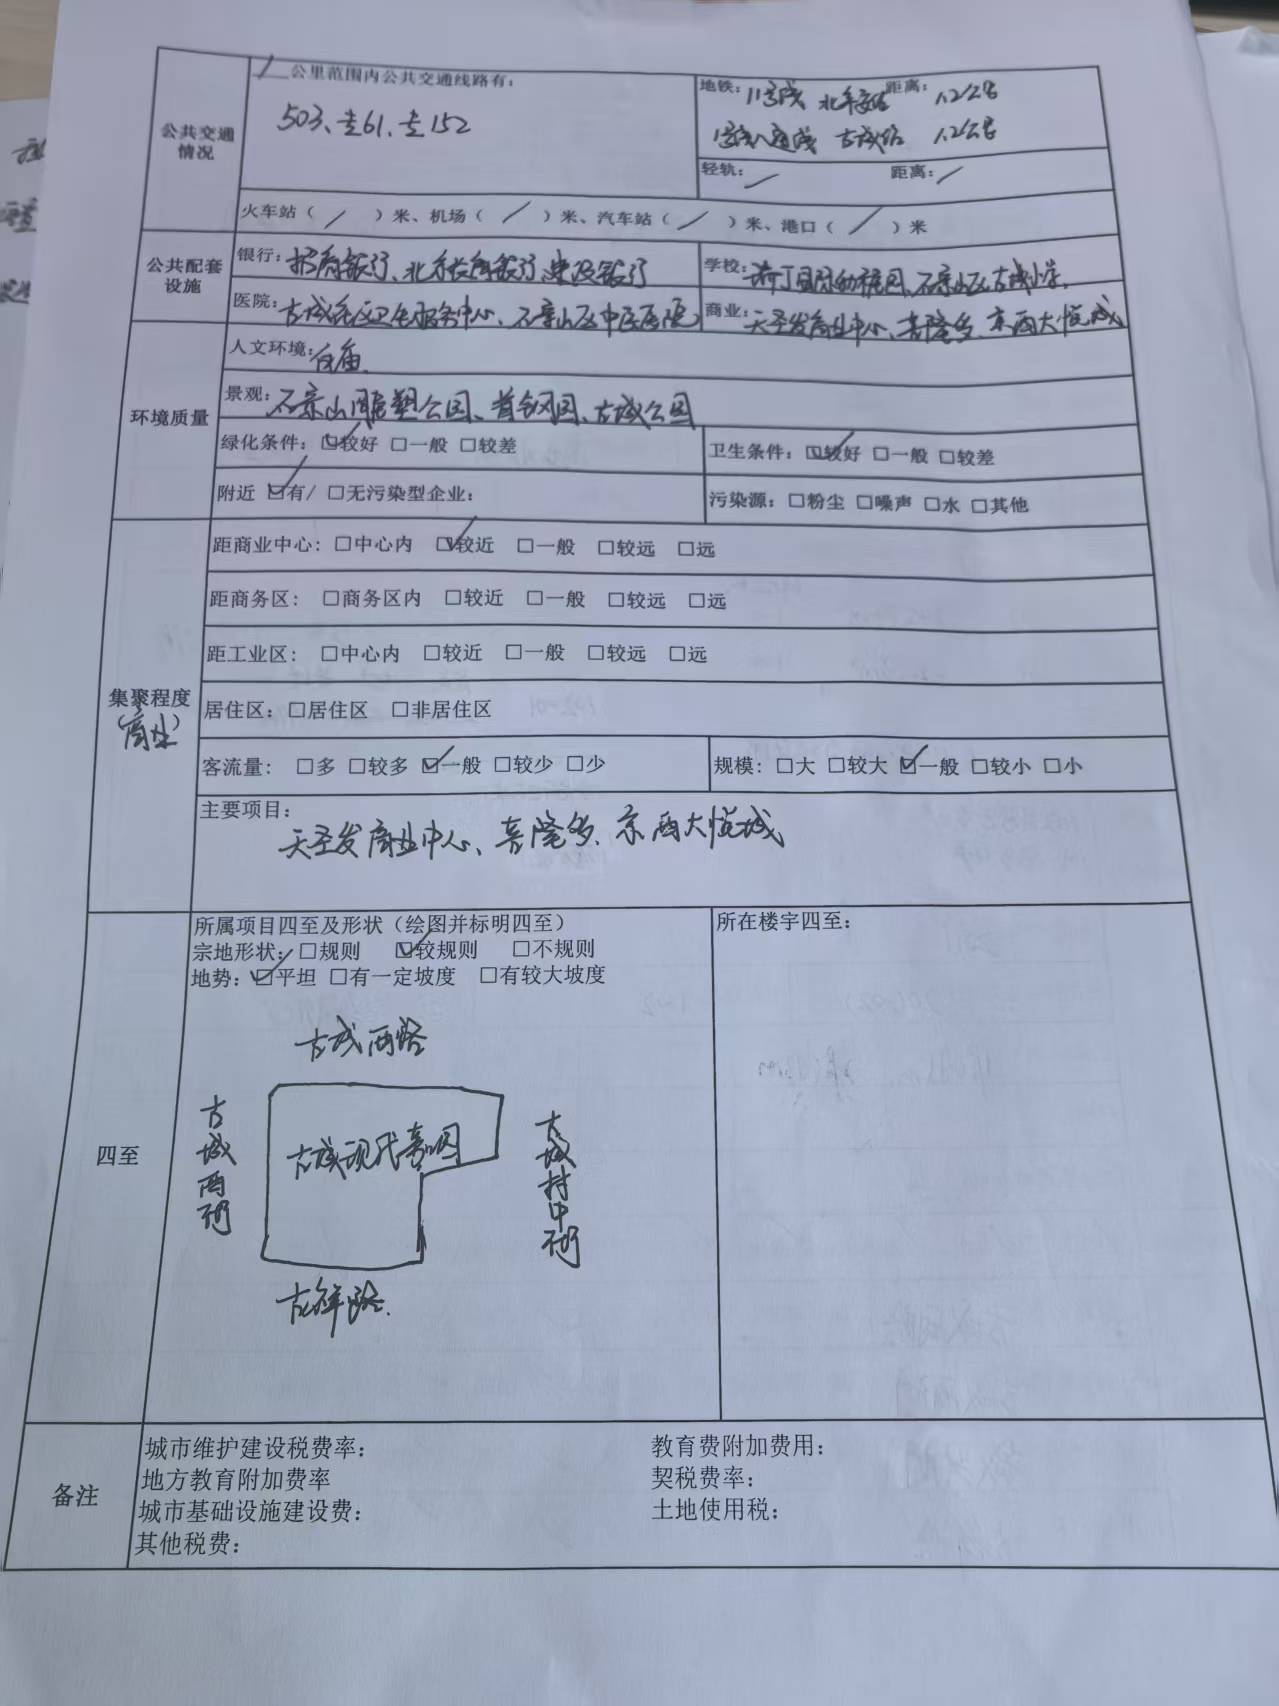 公共交通情况
1 公里范围内公共交通线路有：
503、专61、专152
地铁：11号线 北辛安站 距离：1.2公里
1号线八通线 古城站 1.2公里
轻轨：/ 距离：/
火车站（ / ）米、机场（ / ）米、汽车站（ / ）米、港口（ / ）米
公共配套设施
银行：招商银行、北京农商银行、建设银行
学校：幼稚园、石景山区古城小学、
医院：古城社区卫生服务中心、石景山区中医医院
商业：天圣发商业中心、喜隆多、京西大悦城
环境质量
人文环境：
景观：石景山雕塑公园、首钢园、古城公园
绿化条件：☑较好 □一般 □较差
卫生条件：☑较好 □一般 □较差
附近 ☑有/ □无污染型企业：
污染源：□粉尘 □噪声 □水 □其他
集聚程度
（商业）
距商业中心：□中心内 ☑较近 □一般 □较远 □远
距商务区： □商务区内 □较近 □一般 □较远 □远
距工业区： □中心内 □较近 □一般 □较远 □远
居住区：□居住区 □非居住区
客流量： □多 □较多 ☑一般 □较少 □少
规模：□大 □较大 ☑一般 □较小 □小
主要项目：
天圣发商业中心、喜隆多、京西大悦城
四至
所属项目四至及形状（绘图并标明四至）
宗地形状：□规则 ☑较规则 □不规则
地势：☑平坦 □有一定坡度 □有较大坡度
所在楼宇四至：
古城西路
古城西街
古城现代嘉园
古城村中街
古祥路
备注
城市维护建设税费率：
教育费附加费用：
地方教育附加费率
契税费率：
城市基础设施建设费：
土地使用税：
其他税费：